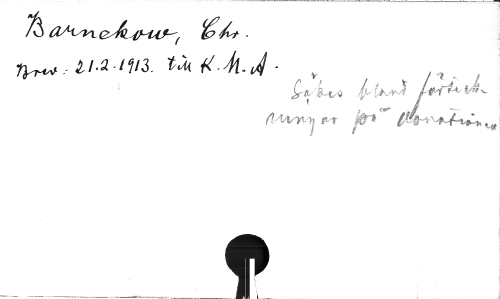 Barnekow, Chr.
Brev: 21.2.1913. till K. M. A.
Sökes bland förteck-
ningar på donationer